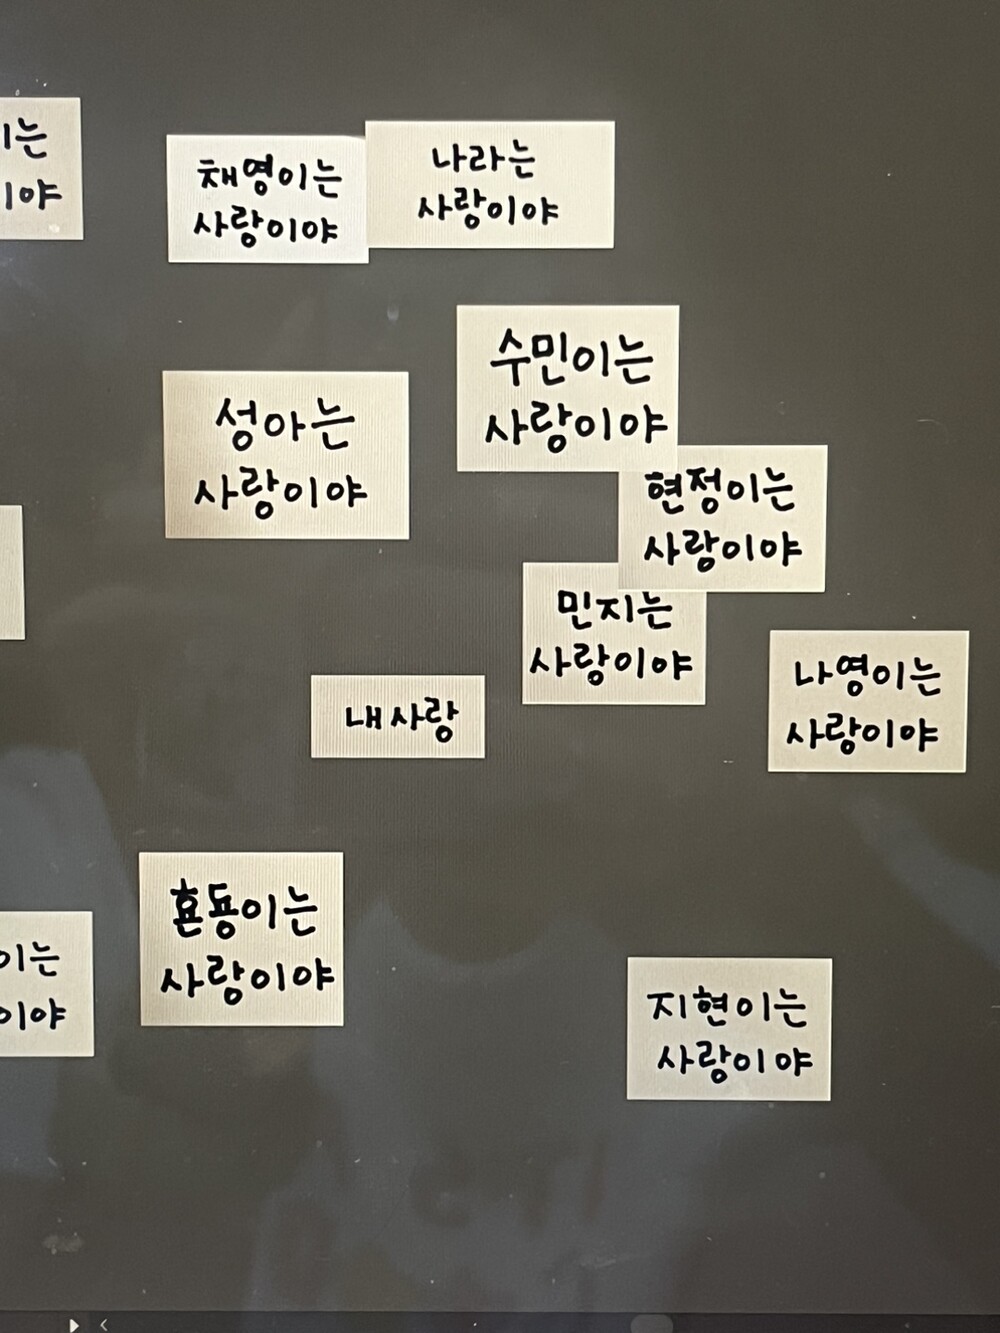 이는
이야
채영이는
사랑이야
나라는
사랑이야
수민이는
사랑이야
성아는
사랑이야
현정이는
사랑이야
민지는
사랑이야
나영이는
사랑이야
내 사랑
이는
사랑이야
이는
이야
지현이는
사랑이야